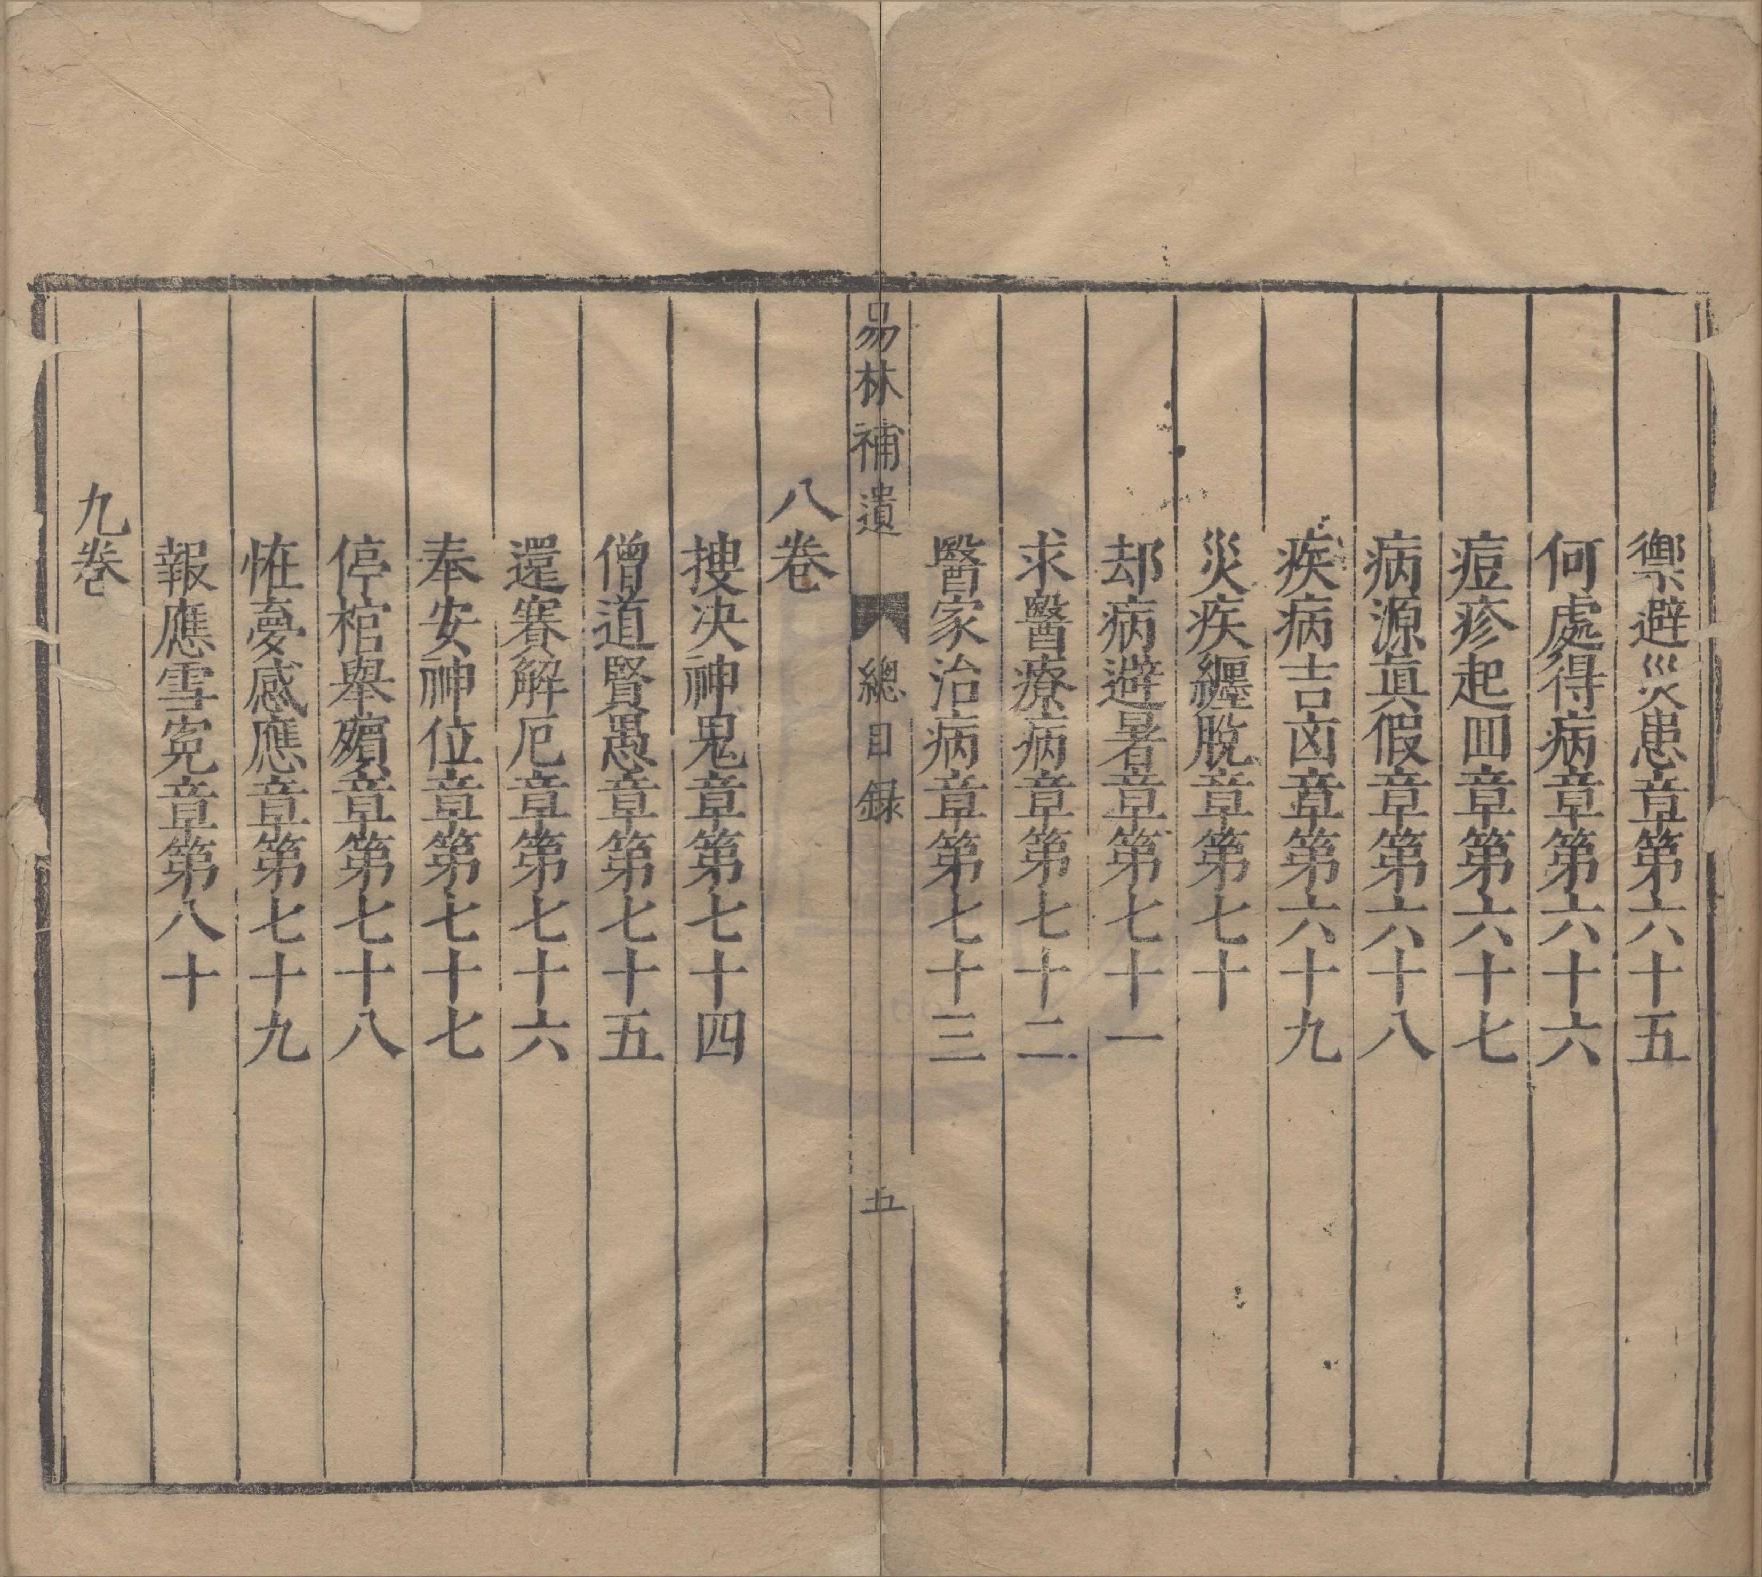 禦避災患章第六十五
何處得病章第六十六
痘疹起回章第六十七
病源眞假章第六十八
疾病吉凶章第六十九
災疾纏脫章第七十
却病避暑章第七十一
求醫療病章第七十二
醫家治病章第七十三
易林補遺
總目録
五
八卷
搜决神鬼章第七十四
僧道賢愚章第七十五
還賽解厄章第七十六
奉安神位章第七十七
停棺舉殯章第七十八
怪夢感應章第七十九
報應雪寃章第八十
九卷